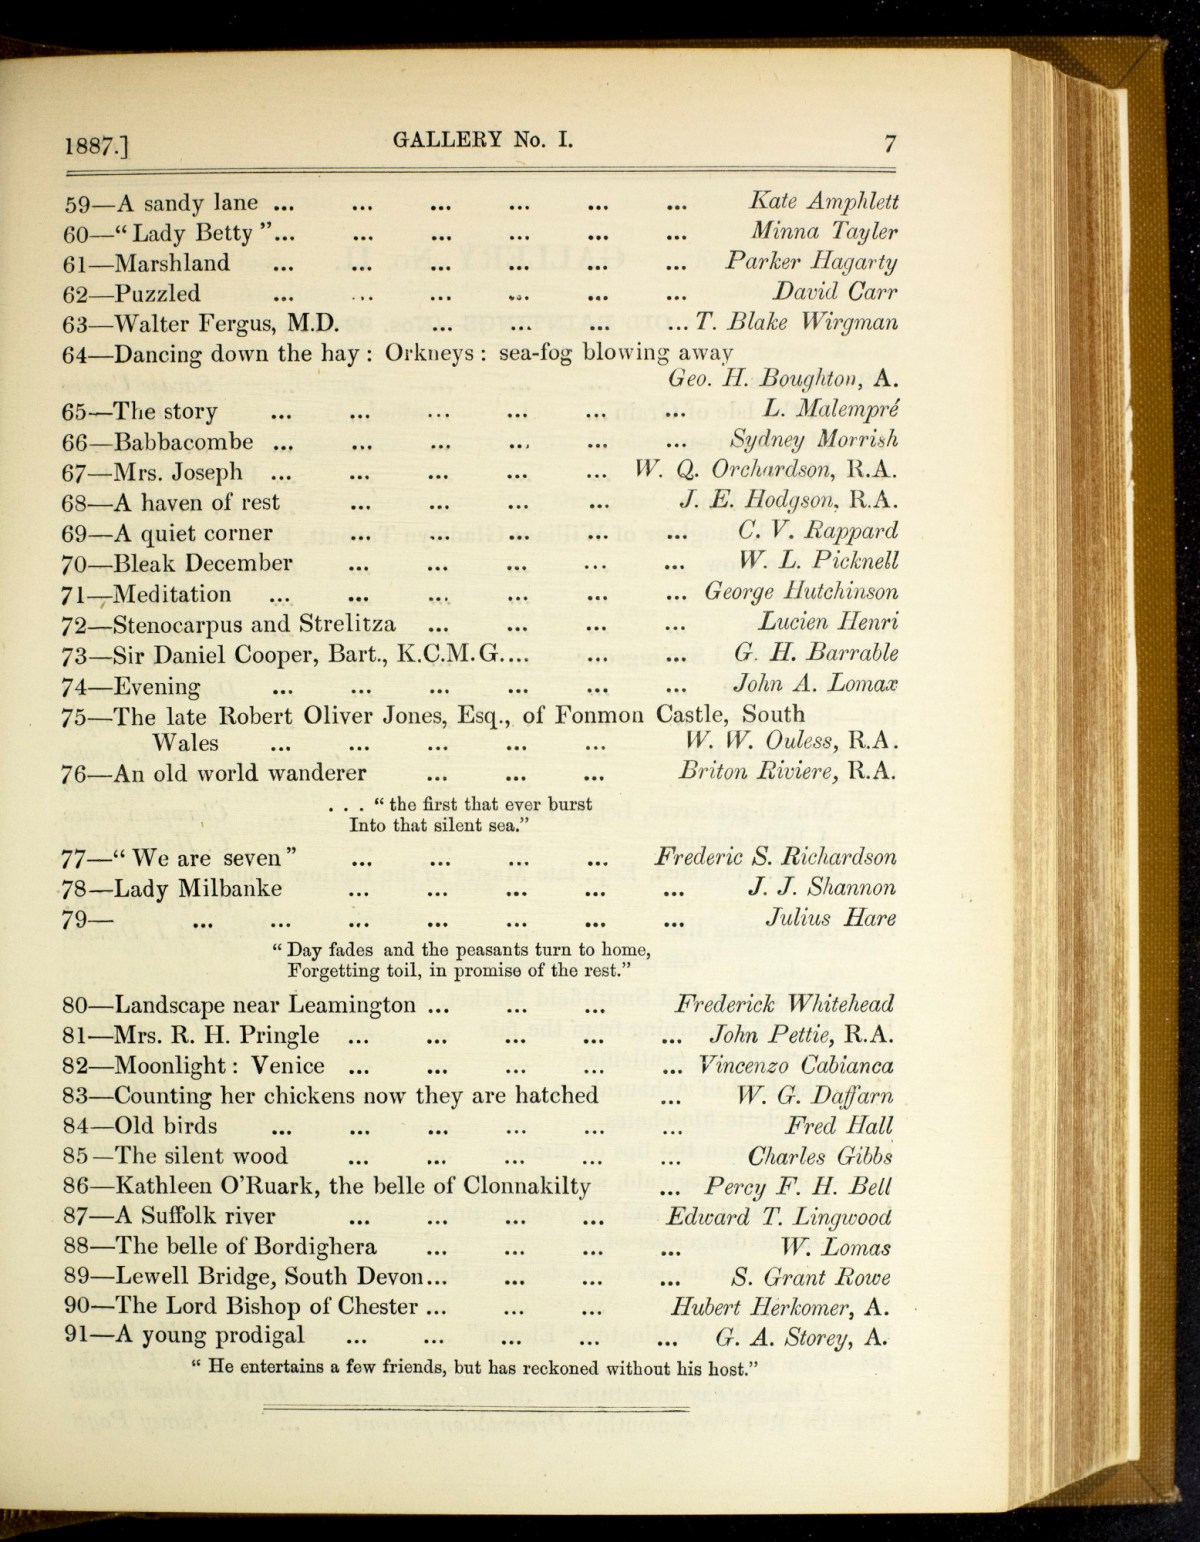 1887.] GALLERY No. I. 7
59—A sandy lane ... ... ... ... ... ... Kate Amphlett
60—“Lady Betty”... ... ... ... ... ... Minna Tayler
61—Marshland ... ... ... ... ... ... Parker Hagarty
62—Puzzled ... ... ... ... ... ... David Carr
63—Walter Fergus, M.D. ... ... ... ... T. Blake Wirgman
64—Dancing down the hay: Orkneys: sea-fog blowing away
Geo. H. Boughton, A.
65—The story ... ... ... ... ... ... L. Malempré
66—Babbacombe ... ... ... ... ... ... Sydney Morrish
67—Mrs. Joseph ... ... ... ... ... W. Q. Orchardson, R.A.
68—A haven of rest ... ... ... ... J. E. Hodgson, R.A.
69—A quiet corner ... ... ... ... ... C. V. Rappard
70—Bleak December ... ... ... ... ... W. L. Picknell
71—Meditation ... ... ... ... ... ... George Hutchinson
72—Stenocarpus and Strelitza ... ... ... ... Lucien Henri
73—Sir Daniel Cooper, Bart., K.C.M.G.... ... ... G. H. Barrable
74—Evening ... ... ... ... ... ... John A. Lomax
75—The late Robert Oliver Jones, Esq., of Fonmon Castle, South
Wales ... ... ... ... ... W. W. Ouless, R.A.
76—An old world wanderer ... ... ... Briton Riviere, R.A.
. . . “the first that ever burst
Into that silent sea.”
77—“We are seven” ... ... ... ... Frederic S. Richardson
78—Lady Milbanke ... ... ... ... ... J. J. Shannon
79— ... ... ... ... ... ... ... Julius Hare
“Day fades and the peasants turn to home,
Forgetting toil, in promise of the rest.”
80—Landscape near Leamington ... ... ... Frederick Whitehead
81—Mrs. R. H. Pringle ... ... ... ... ... John Pettie, R.A.
82—Moonlight: Venice ... ... ... ... ... Vincenzo Cabianca
83—Counting her chickens now they are hatched ... W. G. Daffarn
84—Old birds ... ... ... ... ... ... Fred Hall
85—The silent wood ... ... ... ... ... Charles Gibbs
86—Kathleen O’Ruark, the belle of Clonnakilty ... Percy F. H. Bell
87—A Suffolk river ... ... ... ... Edward T. Lingwood
88—The belle of Bordighera ... ... ... ... W. Lomas
89—Lewell Bridge, South Devon... ... ... ... S. Grant Rowe
90—The Lord Bishop of Chester ... ... ... Hubert Herkomer, A.
91—A young prodigal ... ... ... ... ... G. A. Storey, A.
“He entertains a few friends, but has reckoned without his host.”